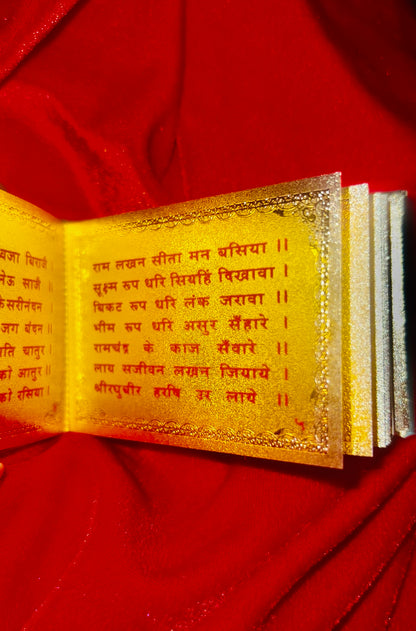 बिराजै
साजै
केसरीनंदन
जग बंदन
अति चातुर
को आतुर
को रसिया ।
राम लखन सीता मन बसिया ॥
सूक्ष्म रूप धरि सियहिं दिखावा ।
बिकट रूप धरि लंक जरावा ॥
भीम रूप धरि असुर सँहारे ।
रामचंद्र के काज सँवारे ॥
लाय सजीवन लखन जियाये ।
श्रीरघुबीर हरषि उर लाये ॥
५